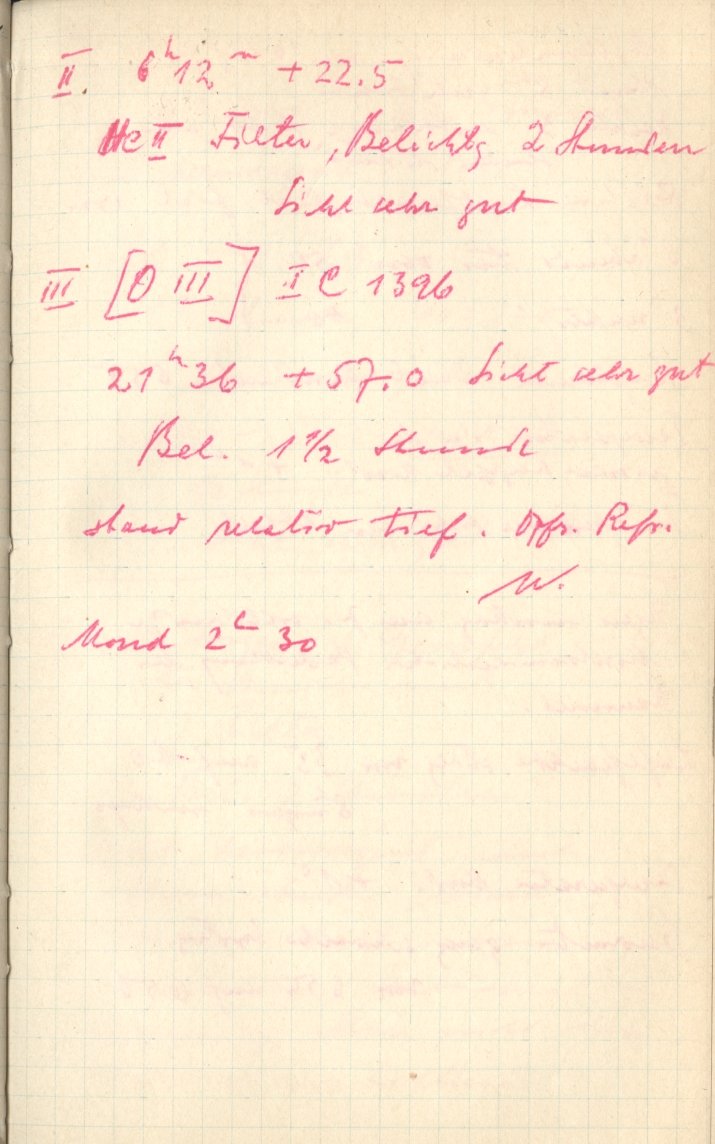 II. 6h12m +22.5
He II Filter, Belichtg 2 Stunden
Sicht sehr gut
III [O III] IC 1396
21h36 +57.0 Sicht sehr gut
Bel. 1 1/2 Stunde
stand relativ tief. Refr.
W.
Mond 2h 30